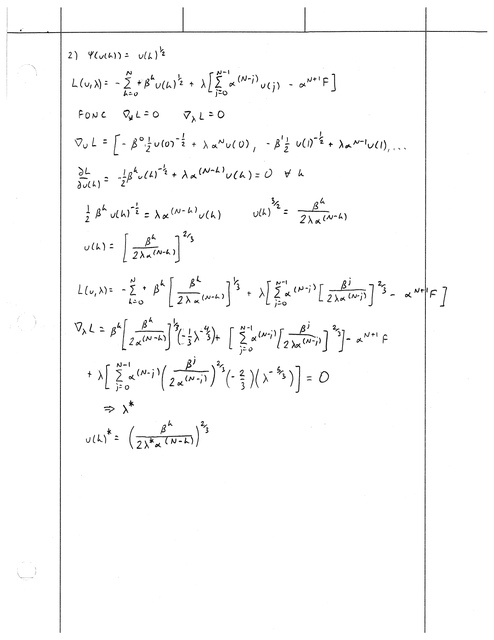 2) Ψ(u(h)) = u(h)^{1/2}
L(u,λ) = -∑_{h=0}^{N} + β^h u(h)^{1/2} + λ[∑_{j=0}^{N-1} α^{(N-j)} u(j) - α^{N+1} F]
FONC ∇_u L = 0 ∇_λ L = 0
∇_u L = [-β^0 · ½ u(0)^{-1/2} + λα^N u(0), -β^1 ½ u(1)^{-1/2} + λα^{N-1} u(1), ...
∂L/∂u(h) = -½ β^h u(h)^{-1/2} + λα^{(N-h)} u(h) = 0 ∀ h
½ β^h u(h)^{-1/2} = λα^{(N-h)} u(h) u(h)^{3/2} = β^h / 2λα^{(N-h)}
u(h) = [β^h / 2λα^{(N-h)}]^{2/3}
L(u,λ) = -∑_{h=0}^{N} + β^h [β^h / 2λα^{(N-h)}]^{1/3} + λ[∑_{j=0}^{N-1} α^{(N-j)} [β^j / 2λα^{(N-j)}]^{2/3} - α^{N+1} F]
∇_λ L = β^h [β^h / 2α^{(N-h)}]^{1/3} (-⅓ λ^{-4/3}) + [∑_{j=0}^{N-1} α^{(N-j)} [β^j / 2λα^{(N-j)}]^{2/3}] - α^{N+1} F
+ λ[∑_{j=0}^{N-1} α^{(N-j)} (β^j / 2α^{(N-j)})^{2/3} (-⅔)(λ^{-5/3})] = 0
⇒ λ*
u(h)* = (β^h / 2λ*α^{(N-h)})^{2/3}